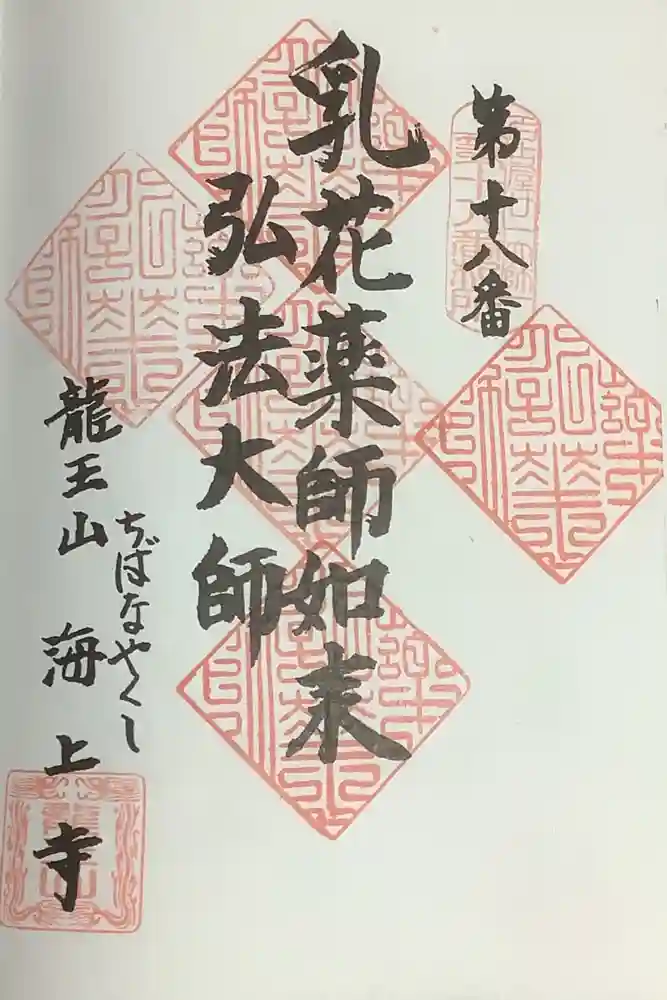 第十八番
乳花薬師如来
弘法大師
ぢばなやくし
龍王山 海上寺